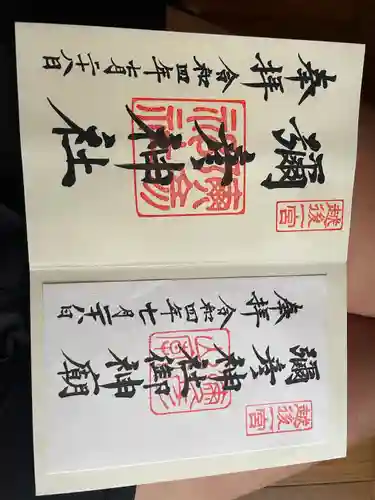 奉拝
越後一宮
彌彦神社
令和四年七月二十八日
奉拝
越後一宮
彌彦神社
御神廟
令和四年七月二十八日